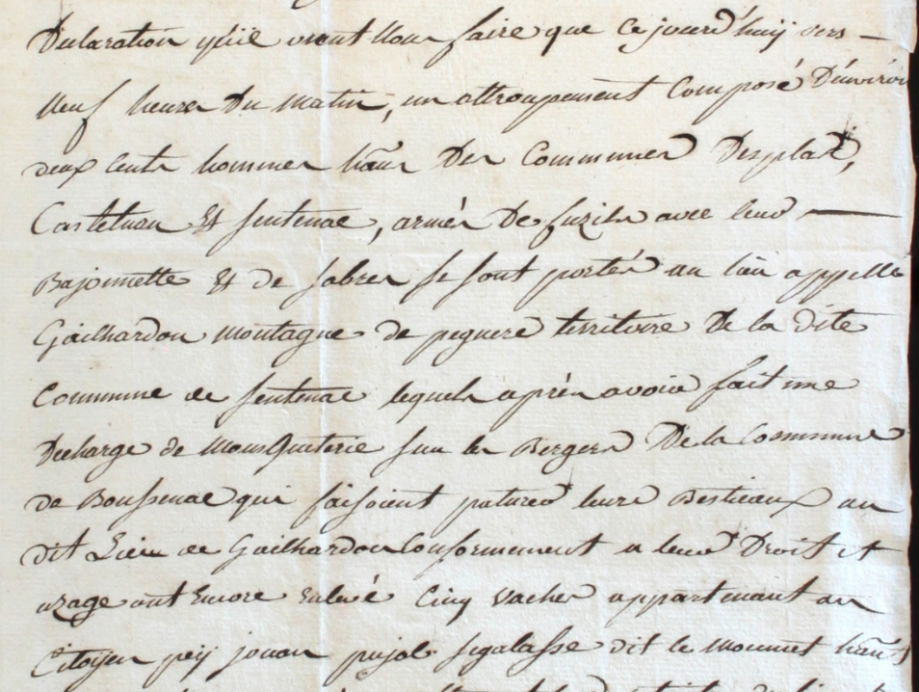 Declaration qu'ils vont nous faire que ce jourd'huy vers —
Neuf heures Du matin, un attroupement Composé D'environ
deux Cents hommes hāns Des Communes Desplas,
Castelnau Et sentenac, armés De fuzils avec leur —
Bajonnette Et de sabres se sont portés au lieu appellé
Gailhardou montagne de peguere territoire De la dite
Commune de sentenac lequels après avoir fait une
Decharge de Mousqueterie sur les Bergers De la Commune
de Boussenac qui faisoient paturer leurs Bestieaux au
dit Lieu de Gailhardou Conformement a leur Droit et
uzage ont Encore Enlevé Cinq vaches appartenant au
Citoÿen peÿ jouan pujol segalasse dit le Mounnet hān